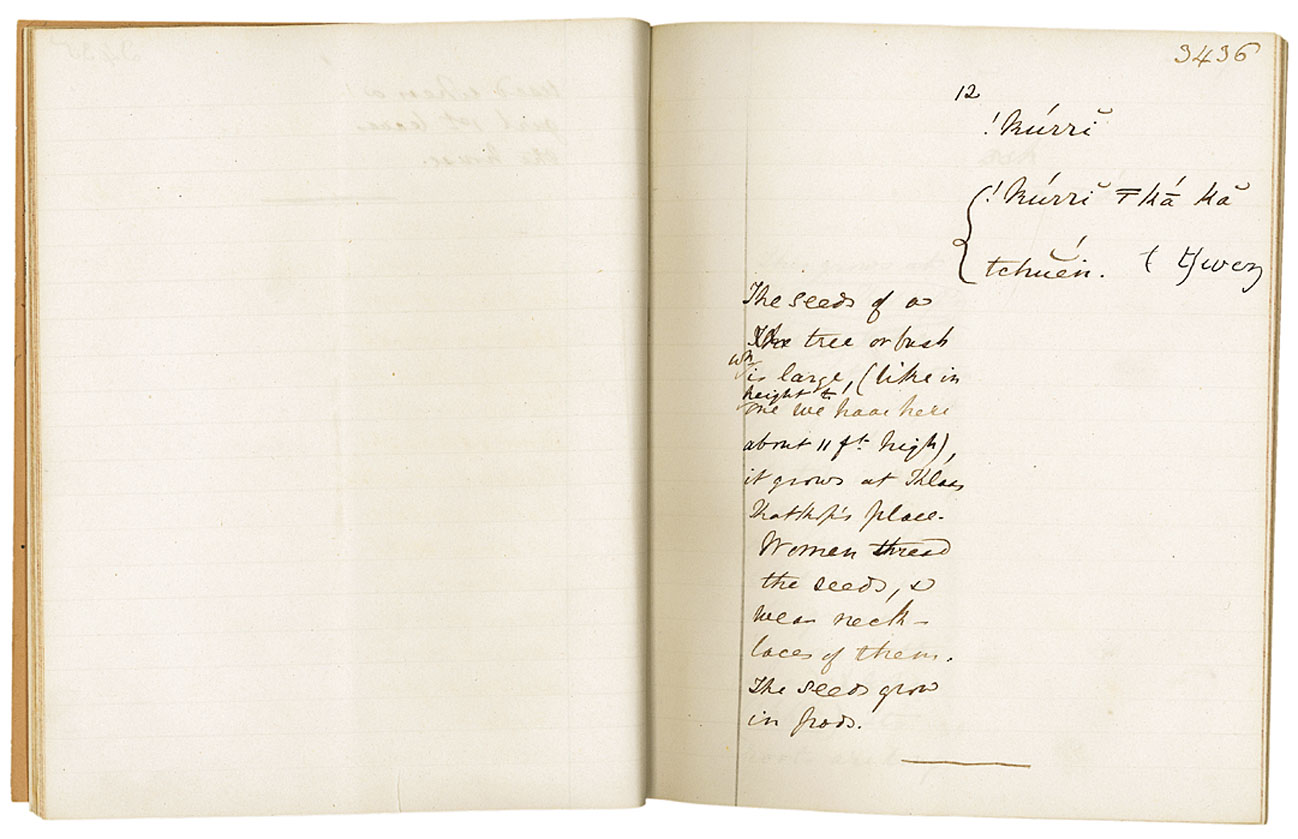 3436
12
!kúrrĭ
!kúrrĭ ǂká̱ kă
tchŭén.
The seeds of a
The tree or bush
wh
is large, (like in
height to
one we have here
about 11 ft. high),
it grows at Klaas
Katkop's place.
Women thread
the seeds, &
wear neck-
laces of them.
The seeds grow
in pods.